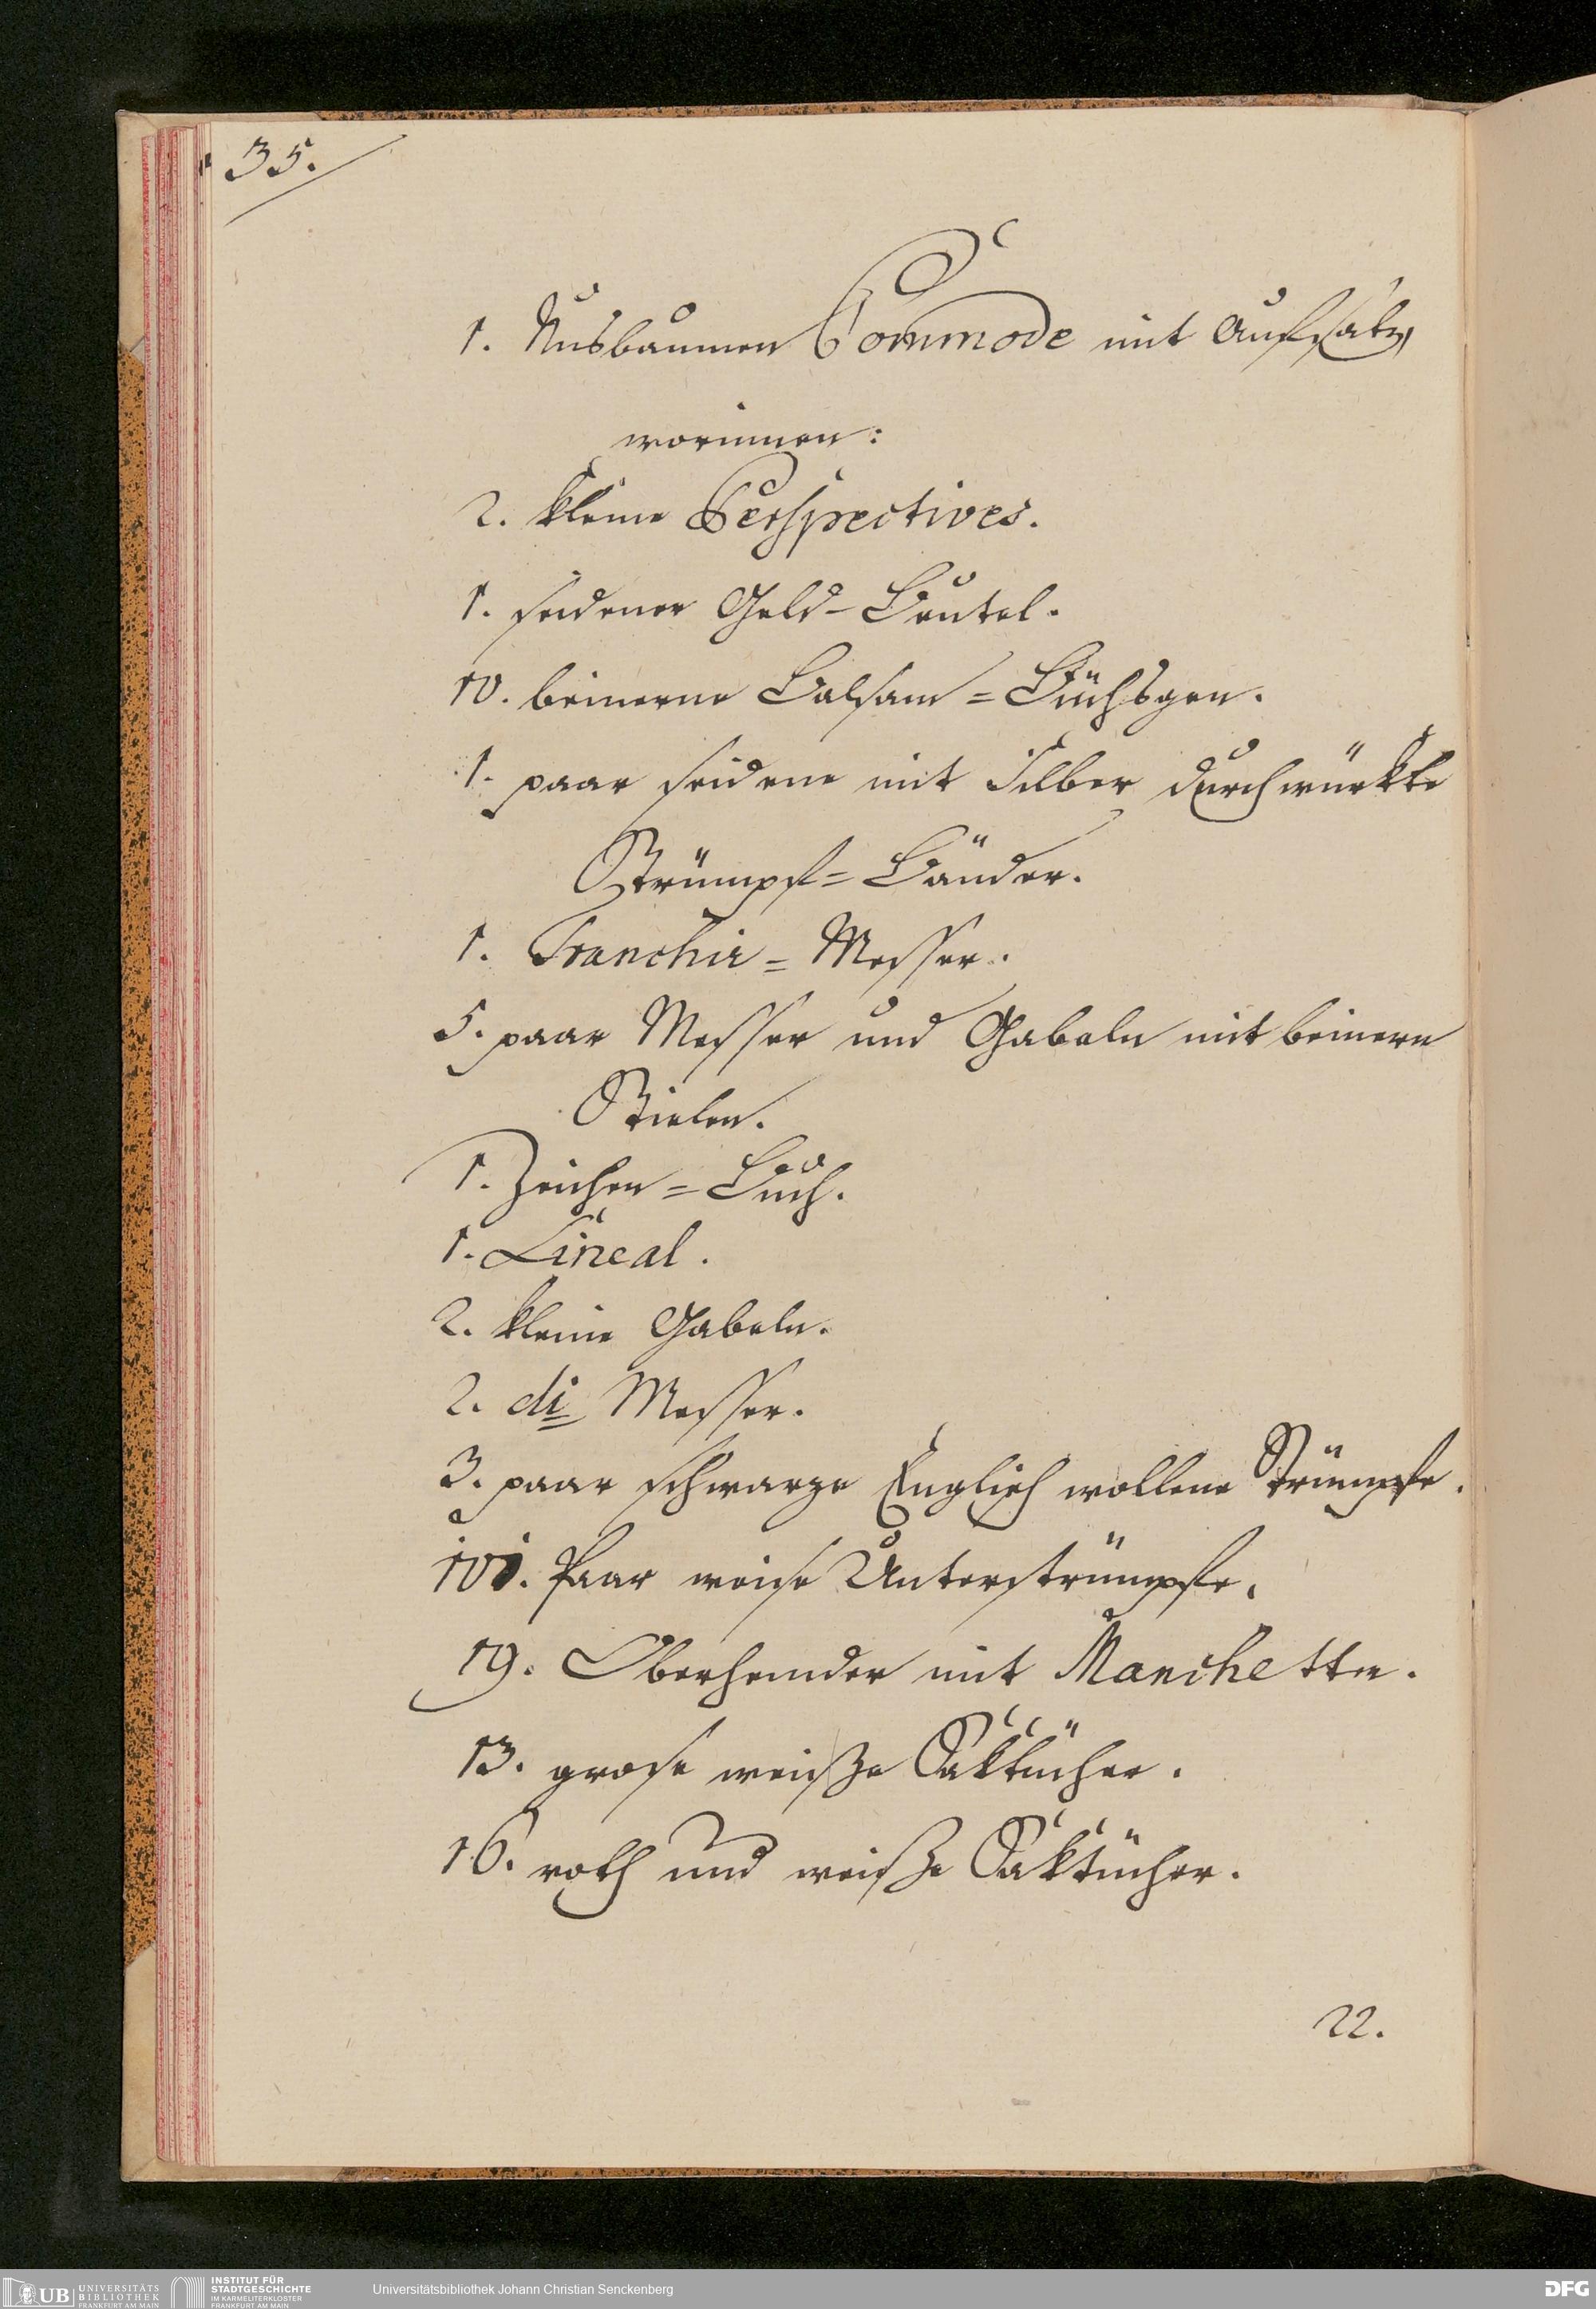 35.
1. Nusbaumen Commode mit Aufsatz,
worinnen:
2. kleine Perspectives.
1. seidener Geld-Beutel.
10. beinerne Balsam=Büchsgen.
1. paar seidene mit Silber durchwürkte
Strümpf=Bänder.
1. Tranchir=Messer.
5. paar Messer und Gabeln mit beinern
Stielen.
1. Zeichen=Buch.
1. Lineal.
2. kleine Gabeln.
2. di Messer.
3. paar schwarze Englisch wollene Strümpfe.
Paar weise Unterstrümpfe.
19. Oberhemder mit Manchetten.
13. grose weisze Säktücher.
16. roth und weisze Säktücher.
22.
UB UNIVERSITÄTS BIBLIOTHEK FRANKFURT AM MAIN
INSTITUT FÜR STADTGESCHICHTE IM KARMELITERKLOSTER FRANKFURT AM MAIN
Universitätsbibliothek Johann Christian Senckenberg
DFG